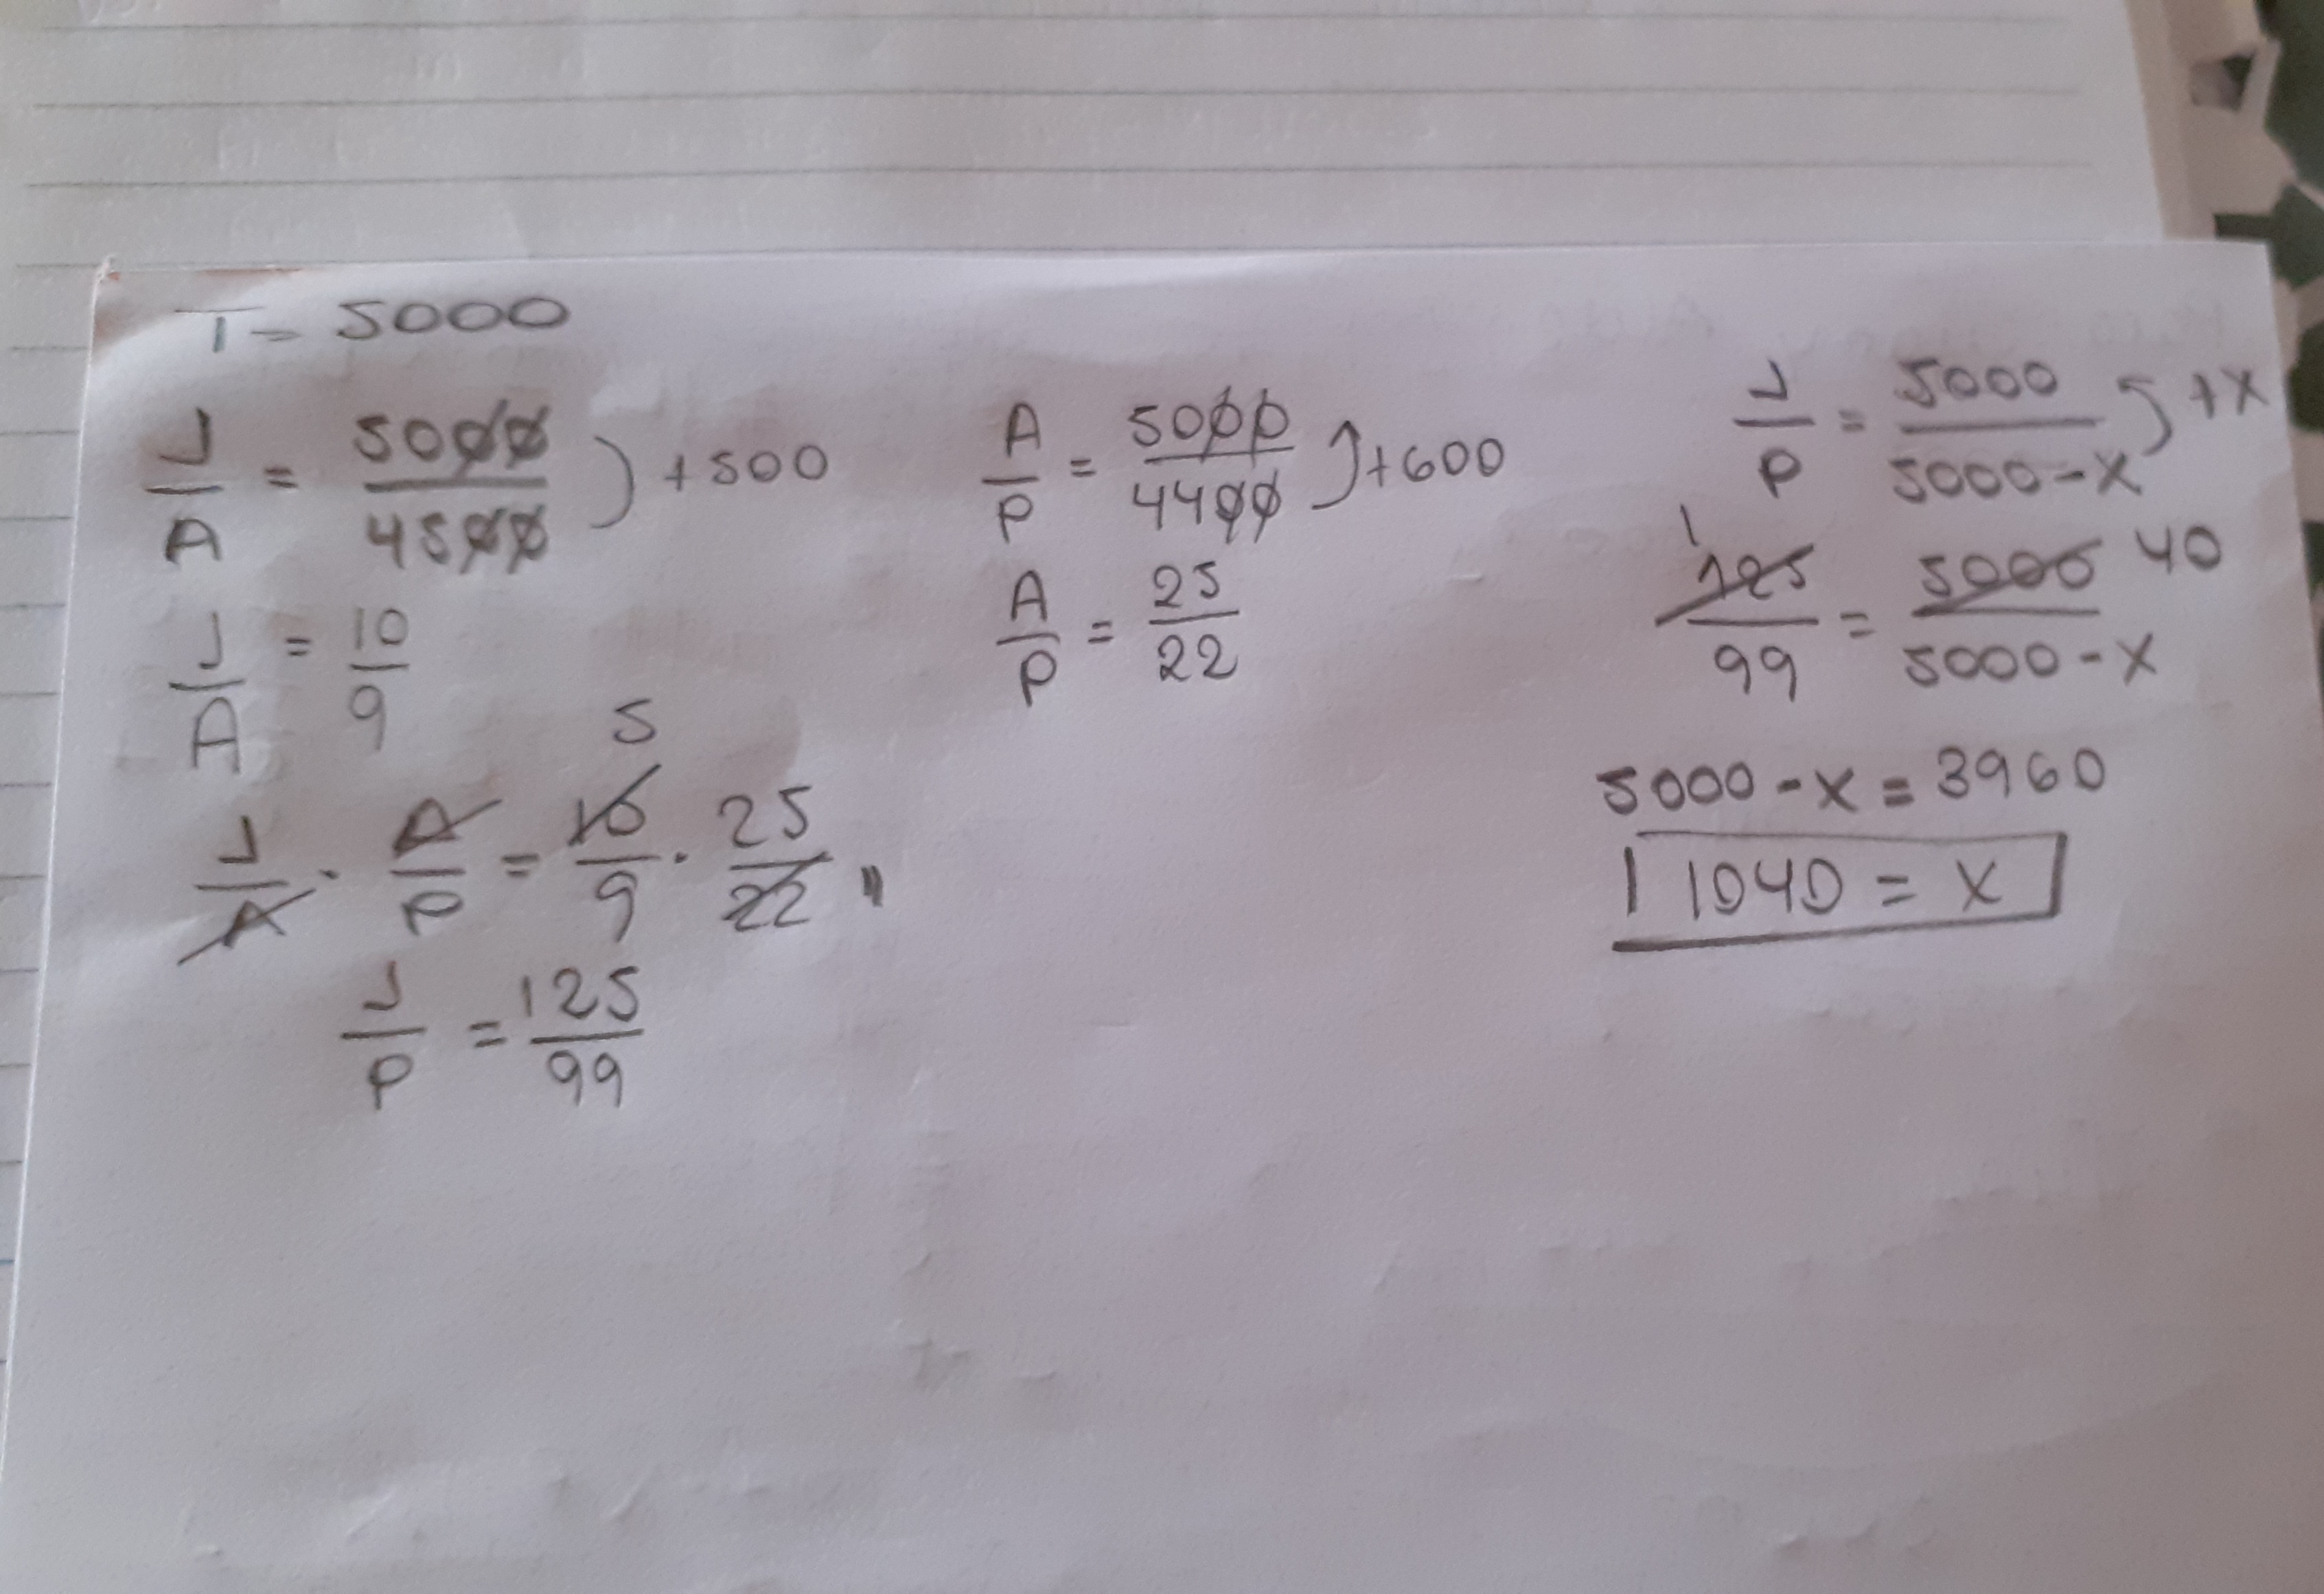 T = 5000
J/A = 5000/4500 ) +500
J/A = 10/9
5
J/A · A/P = 10/9 · 25/22 =
J/P = 125/99
A/P = 5000/4400 ) +600
A/P = 25/22
J/P = 5000/5000-x ) +x
1 125/99 = 5000/5000-x 40
5000 - x = 3960
1040 = x